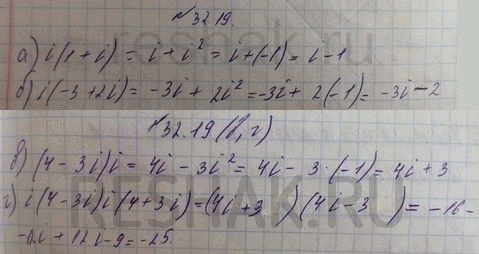 №32.19.
а) i(1+i) = i + i² = i+(-1) = i-1
б) i(-3+2i) = -3i + 2i² = -3i + 2(-1) = -3i-2
№32.19 (в, г)
в) (4-3i)i = 4i - 3i² = 4i - 3·(-1) = 4i+3
г) i(4-3i)i(4+3i) = (4i+3)(4i-3) = -16-
-12i+12i-9 = -25.
RESHAK.RU